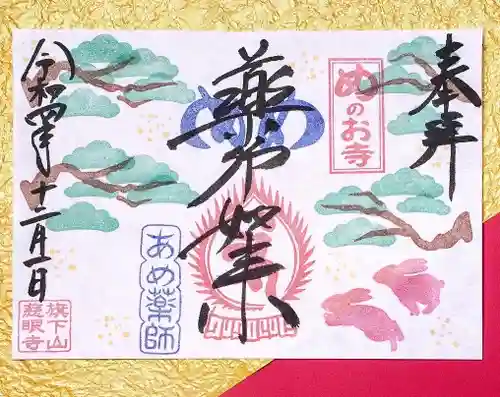 奉拝
ぬのお寺
薬師如来
あめ薬師
令和四年十二月一日
旗下山
慈眼寺